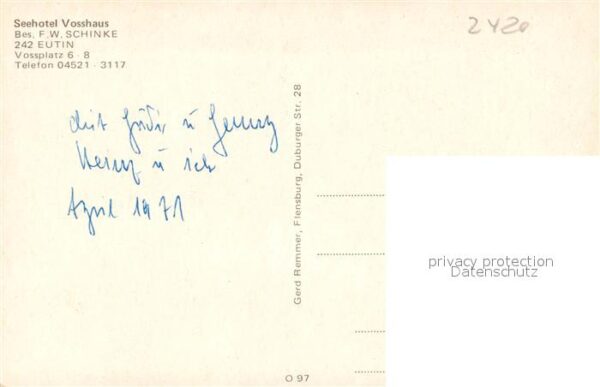 Seehotel Vosshaus
Bes. F. W. SCHINKE
242 EUTIN
Vossplatz 6 - 8
Telefon 04521 · 3117
2420
mit u
Heinz u ich
April 1971
Gerd Remmer, Flensburg, Duburger Str. 28
privacy protection
Datenschutz
O 97